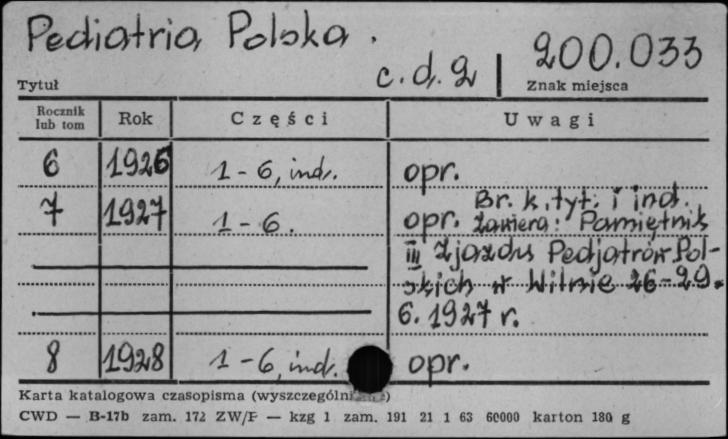 Pediatria Polska.
c.d. 2 200.033
Tytuł Znak miejsca
Rocznik lub tom Rok Części Uwagi
6 1926 1-6, ind. opr.
7 1927 1-6. opr. Br. k. tyt. i ind.
Zawiera: Pamiętnik
III Zjazdu Pedjatrów Pol-
skich w Wilnie 26-29.
6. 1927 r.
8 1928 1-6, ind. opr.
Karta katalogowa czasopisma
CWD — B-17b zam. 172 ZW/F — kzg 1 zam. 191 21 1 63 60000 karton 180 g